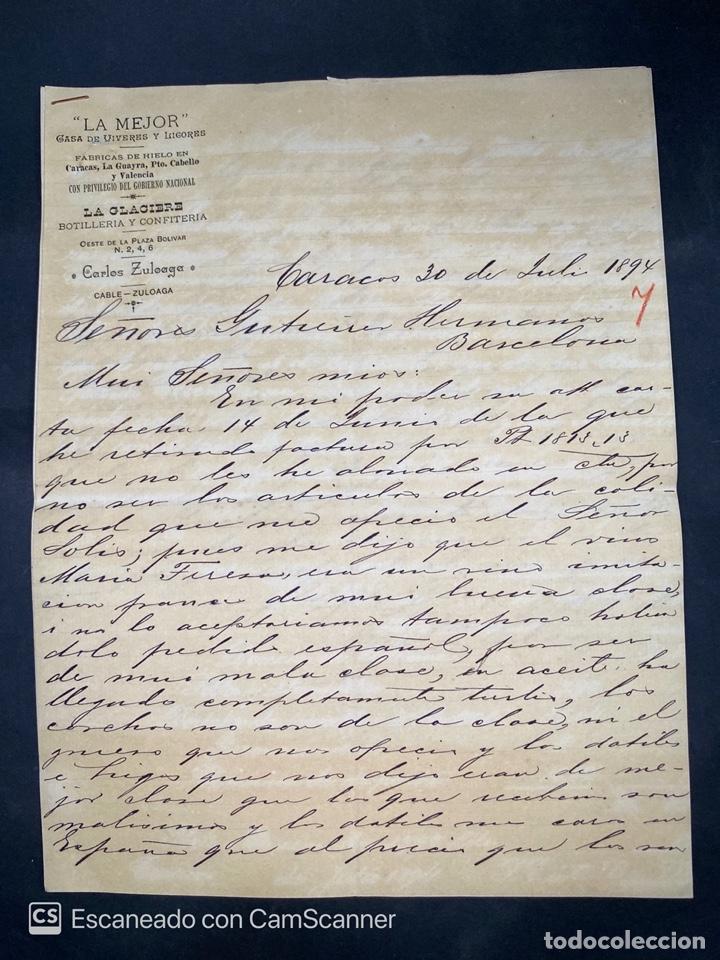 "LA MEJOR"
CASA DE VIVERES Y LICORES
FÁBRICAS DE HIELO EN
Caracas, La Guayra, Pto. Cabello
y Valencia
CON PRIVILEGIO DEL GOBIERNO NACIONAL
LA GLACIERE
BOTILLERIA Y CONFITERIA
OESTE DE LA PLAZA BOLIVAR
N. 2, 4, 6
Carlos Zuloaga
CABLE-ZULOAGA
Caracas 30 de Julio 1894
7
Señores Gutierrez Hermanos
Barcelona
Mui Señores mios:
En mi poder su att car-
ta fecha 14 de Junio de la que
he retirado factura por 1813,13
que no les he abonado en cta, por
no ser los articulos de la cali-
dad que me ofrecio el Señor
Solis; pues me dijo que el vino
Maria Teresa, era un vino imita-
cion frances de mui buena clase,
i no lo aceptariamos tampoco habien
dolo pedido español, por ser
de mui mala clase, en aceite ha
llegado completamente turbio, los
corchos no son de la clase, ni el
grueso que nos ofrecio y los datiles
e higos que nos dijo eran de me-
jor clase que los que recibim son
malisimos y los datiles mas caros en
España que al precio que los
CS Escaneado con CamScanner
todocoleccion